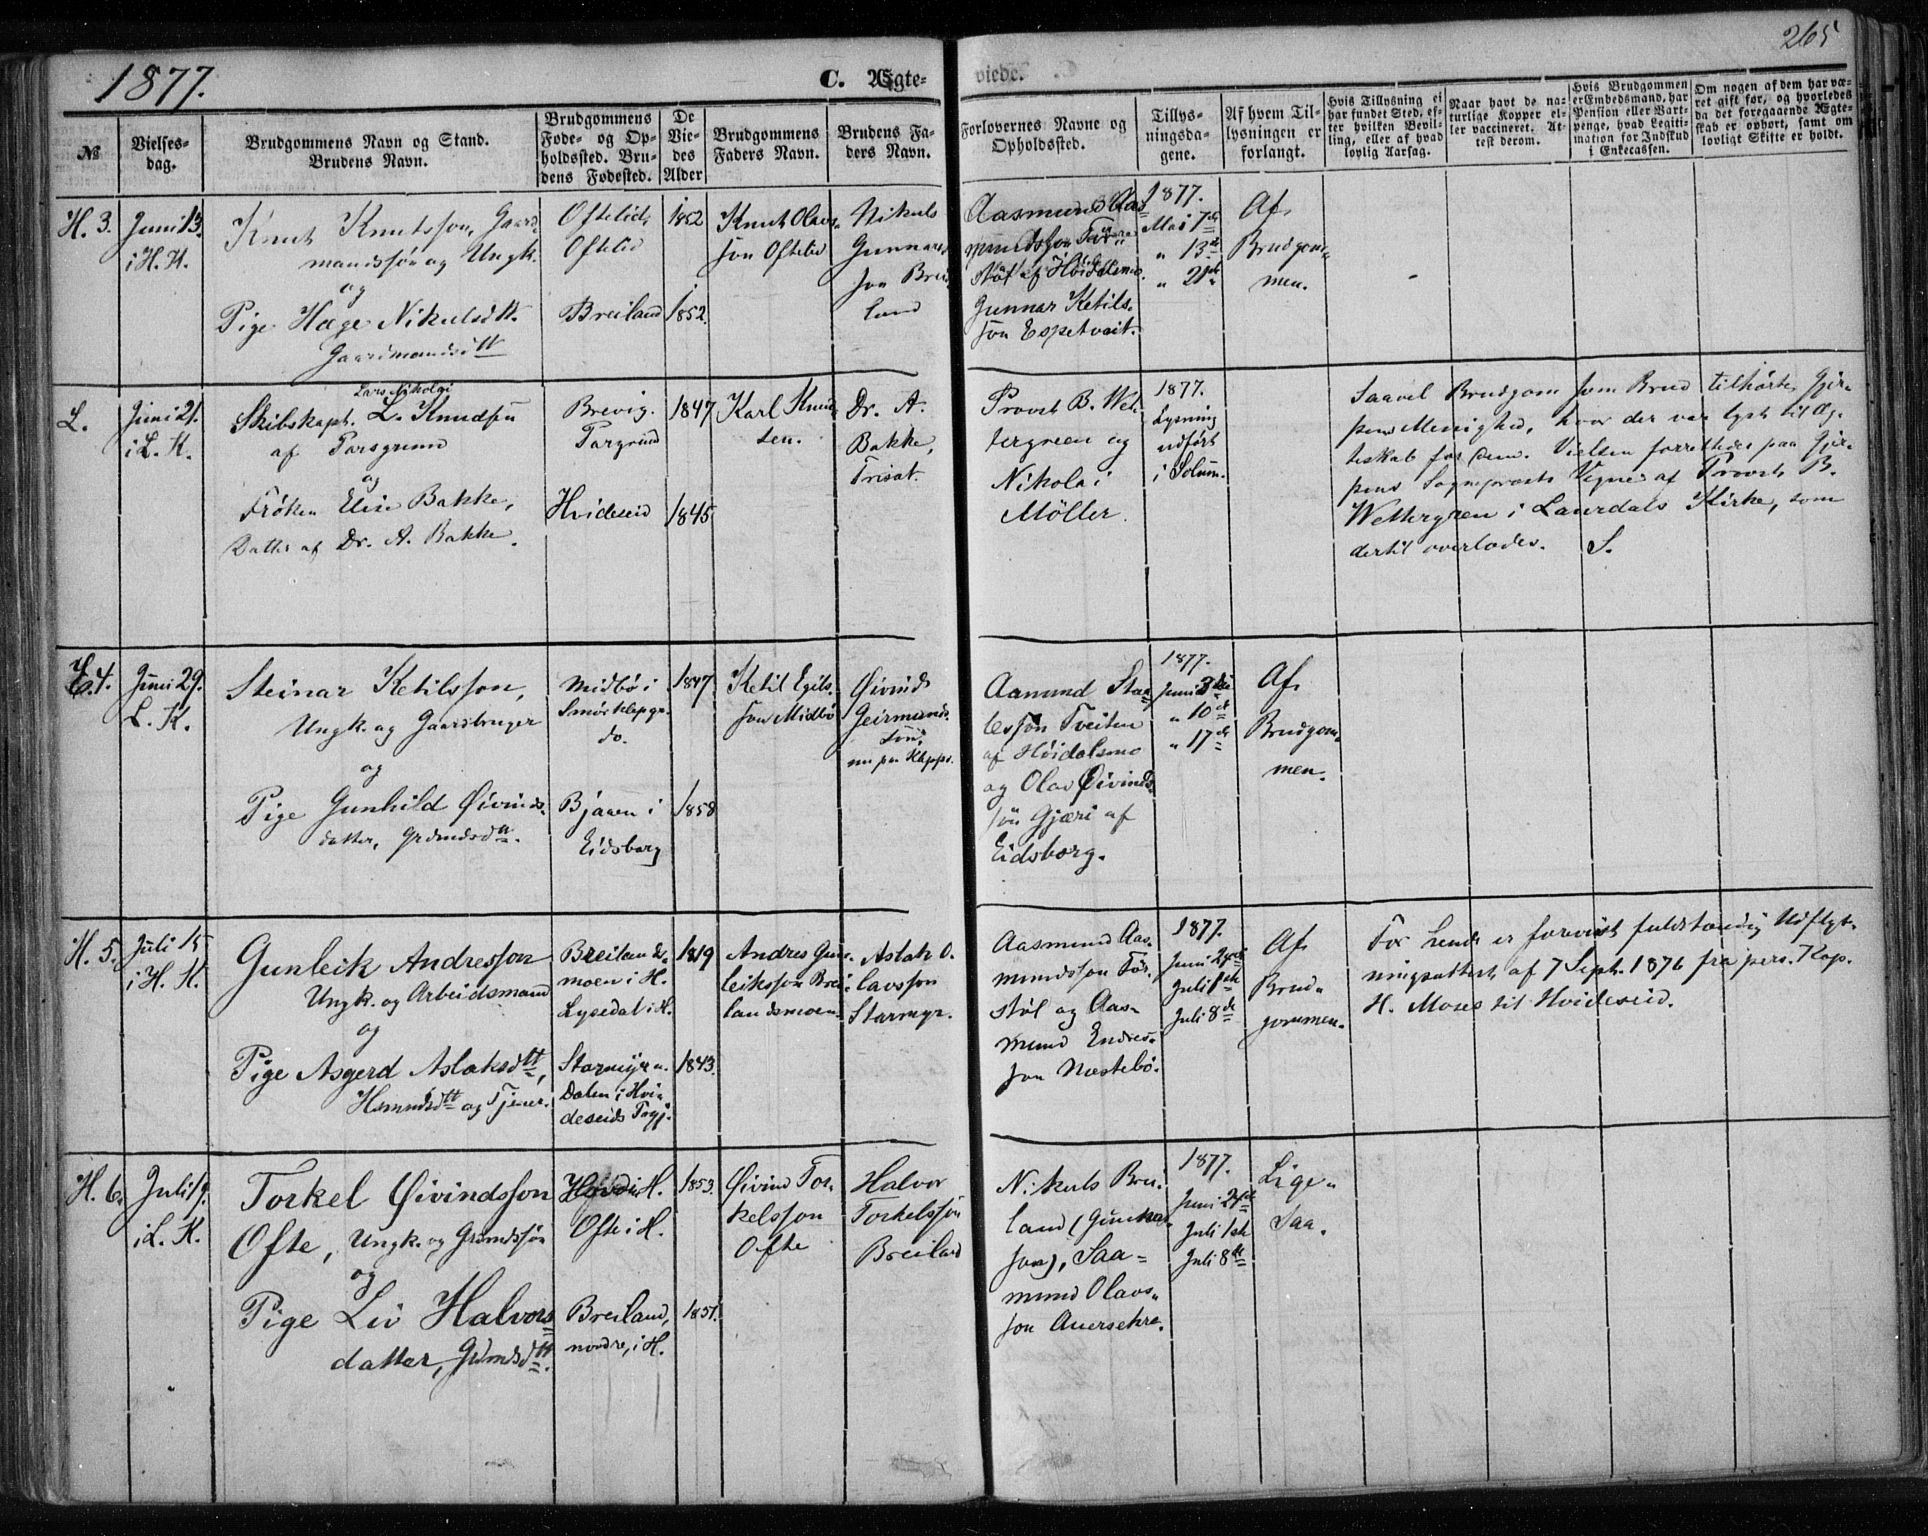 1877.
C. Ægte-
viede.
265
№
Vielses-
dag.
Brudgommens Navn og Stand.
Brudens Navn.
Brudgommens
Føde- og Op-
holdssted. Bru-
dens Fødested.
De
Vie-
des
Alder
Brudgommens
Faders Navn.
Brudens Fa-
ders Navn.
Forlovernes Navne og
Opholdssted.
Tillys-
ningsda-
gene.
Af hvem Til-
lysningen er
forlangt.
Hvis Tillysning ei
har fundet Sted, ef-
ter hvilken Bevil-
ling, eller af hvad
lovlig Aarsag.
Naar havt de na-
turlige Kopper el-
ler vaccineret. At-
test derom.
Hvis Brudgommen
er Embedsmand, har
Pension eller Vart-
penge, hvad Legiti-
mation for Indskud
i Enkecassen.
Om nogen af dem har væ-
ret gift før, og hvorledes
da det foregaaende Ægte-
skab er ophørt, samt om
lovligt Skifte er holdt.
H. 3.
Juni 13.
i H. K.
Knut Knutsson, Gaard-
mandssøn og Ungk.
og
Pige Hæge Nikulsdtt.
Gaardmandsdtt
Oftelid,
Oftelid
Breiland
1852
1852.
Knut Olavs-
son Oftelid
Nikuls
Gunnars-
son Brei-
land
Aasmund Aas-
mundsson
støl af Høidalsmo.
Gunnar Ketils-
son Espetveit.
1877.
Mai 7de
" 13de
" 21de
Af
Brudgom-
men.
L.
Juni 21.
i L. K.
Lars Nikolai
Skibskapt. L. Knudsen
af Porsgrund
og
Frøken Elise Bakke,
Datter af Dr. A. Bakke.
Brevig.
Porgrund
Hvideseid
1847
1845
Karl Knud-
sen.
Dr. A.
Bakke,
Trisæt.
Provst B. Wet-
tergreen og
Nikolai
Möller.
1877.
Lysning
udført
i Solum.
Saavel Brudgom som Brud tilhørte Gjer-
pens Menighed, hvor der var lyst til Æg-
teskab for dem. Vielsen forrettedes paa Gjer-
pens Sogneprests Vegne af Provst B.
Wettergreen i Laurdals Kirke, som
dertil overlodes. S.
E. 4.
Juni 29.
L. K.
Steinar Ketilsson,
Ungk. og Gaardbruger
og
Pige Gunhild Øivinds-
datter, Grdmdsdtt.
Midbö i
Smörklepgr.
do.
Bjaaen i
Eidsborg
1847
1858
Ketil Egils-
son Midbö
Øivind
Geirmunds-
søn,
nu paa Klepps.
Aamund Staa-
lesson Tveiten
af Höidalsmo
og Olav Øivinds-
søn Gjæri af
Eidsborg.
1877.
Juni 3die
" 10de
" 17de
Af
Brudgom-
men.
H. 5.
Juli 15
i H. K.
Gunleik Andresson
Ungk. og Arbeidsmand
og
Pige Asgerd Aslaksdtt,
Hsmndsdtt og Tjener.
Breilands-
moen i H.
Lysedal i H.
Starmyr u.
Dalen i Hvi-
deseids Prgj.
1849
1843.
Andres Gun-
leiksson Brei-
landsmoen
Aslak O-
lavsson
Starmyr.
Aasmund Aas-
mundsson For-
støl og Aas-
mund Endres-
son Næstebö.
1877.
Juni 24de
Juli 1ste
Juli 8de
Af
Brud-
gommen.
For hende er forevist fuldstændig Udflyt-
ningsattest af 7 Sept. 1876 fra pers. Kap.
H. Moses til Hvideseid.
H. 6.
Juli 19.
i L. K.
Torkel Øivindsson
Ofte, Ungk. og Grdmdssøn
og
Pige Liv Halvors
datter, Grdmdsdtt.
i H.
Ofte i H.
Breiland,
nordre, i H.
1853.
1851.
Øivind Tor-
kelsson
Ofte
Halvor
Torkelsson
Breiland
Nikuls Brei-
land (Gunnar-
son), Saa-
mund Olavs-
son Auersekre.
1877.
Juni 24de
Juli 1ste
Juli 8de
Lige-
saa.